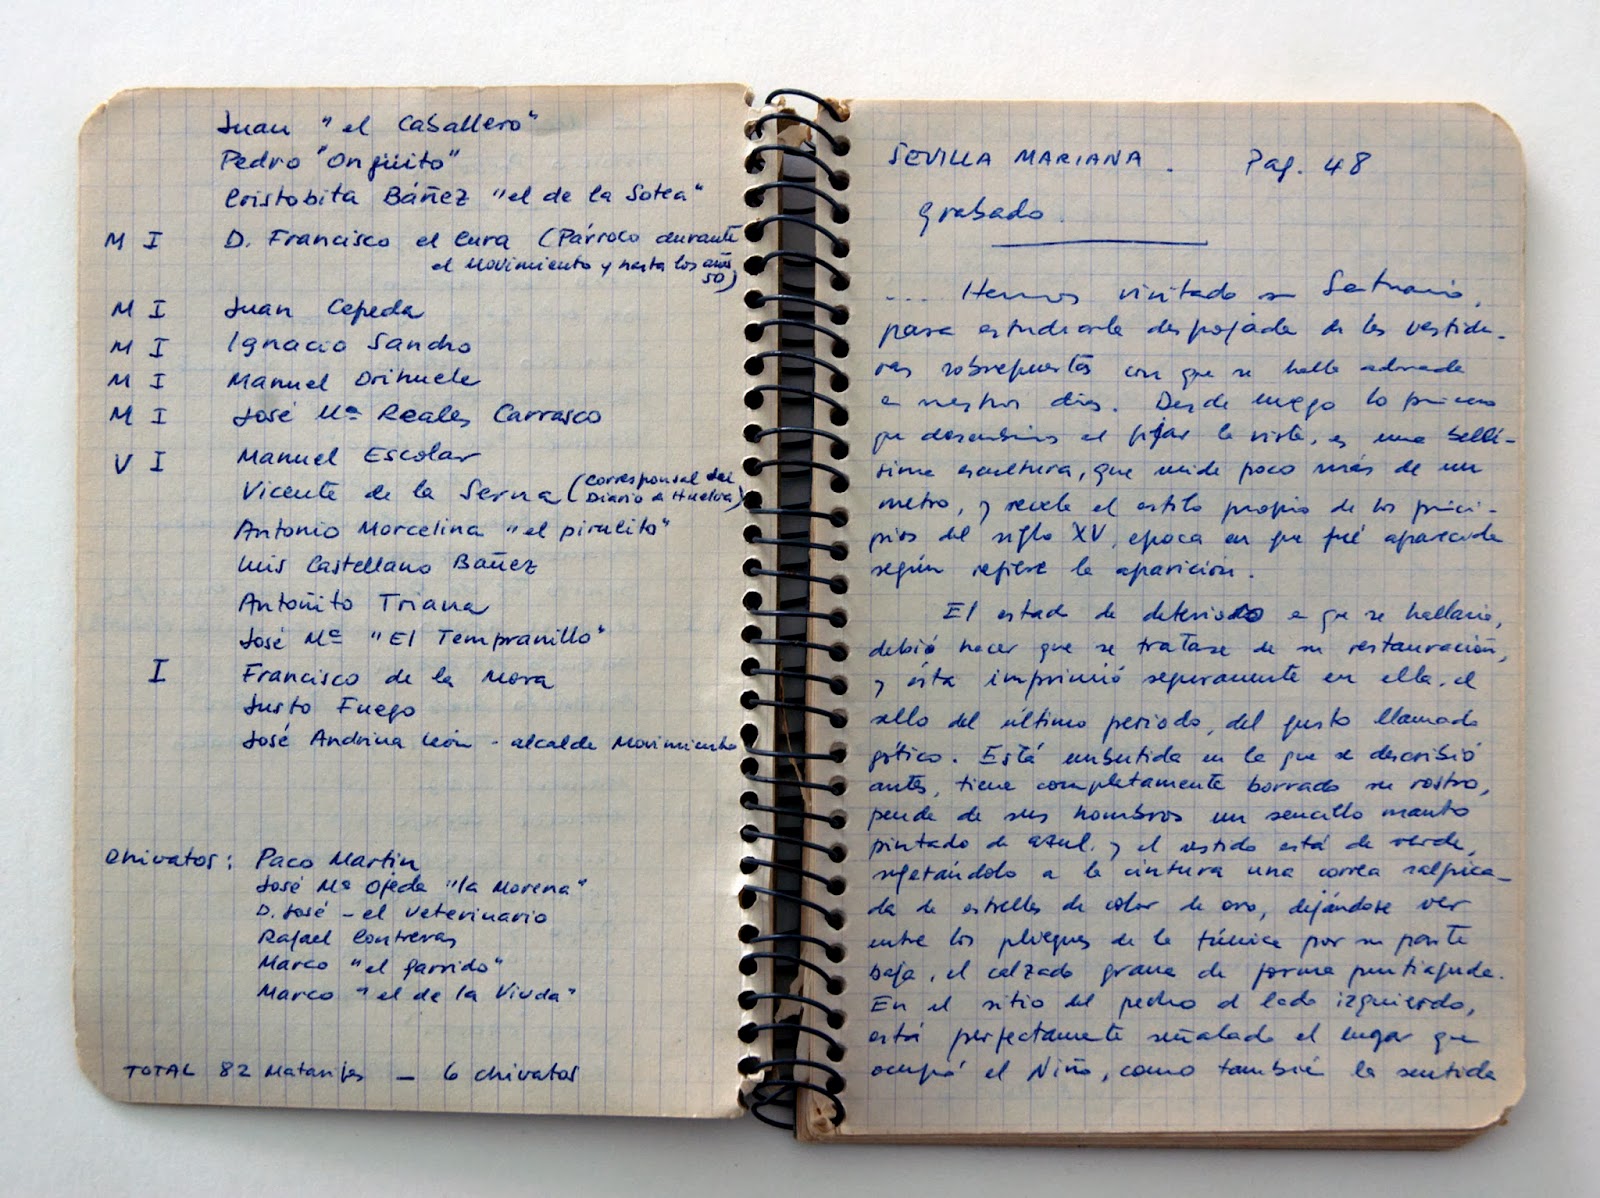 Juan "el Caballero"
Pedro "Ongüito"
Cristobita Báñez "el de la Sotea"
M I D. Francisco el Cura (Párroco durante
el Movimiento y hasta los años
50)
M I Juan Cepeda
M I Ignacio Sancho
M I Manuel Orihuela
M I José Mª Reales Carrasco
V I Manuel Escolar
Vicente de la Serna (Corresponsal del
Diario de Huelva)
Antonio Morcelina "el pirulito"
Luis Castellano Báñez
Antoñito Triana
José Mª "El Tempranillo"
I Francisco de la Mora
Justo Fuego
José Andrina León - alcalde Movimiento
Chivatos: Paco Martin
José Mª Ojeda "la Morena"
D. José - el veterinario
Rafael Contreras
Marco "el garrido"
Marco "el de la Viuda"
TOTAL 82 Matanjes - 6 chivatos
SEVILLA MARIANA. Pag. 48
grabado.
... Hemos visitado su Santuario,
para estudiarla despojada de las vestidu-
ras sobrepuestas con que se halla adornada
en nuestros dias. Desde luego lo primero
que descubrimos al fijar la vista, es una bellí-
sima escultura, que mide poco más de un
metro, y revela el estilo propio de los princi-
pios del siglo XV, epoca en que fué aparecida
según refiere la aparición.
El estado de deterioro a que se hallaría,
debió hacer que se tratase de su restauración,
y ésta imprimió seguramente en ella, el
sello del último periodo, del gusto llamado
gótico. Está embutida en la que se describió
antes, tiene completamente borrado su rostro,
pende de sus hombros un sencillo manto
pintado de azul, y el vestido está de verde,
sujetándolo a la cintura una correa salpica-
da de estrellas de color de oro, dejándose ver
entre los pliegues de la túnica por su parte
baja, el calzado grana de forma puntiaguda.
En el sitio del pecho al lado izquierdo,
está perfectamente señalado el lugar que
ocupó el Niño, como también la sentida